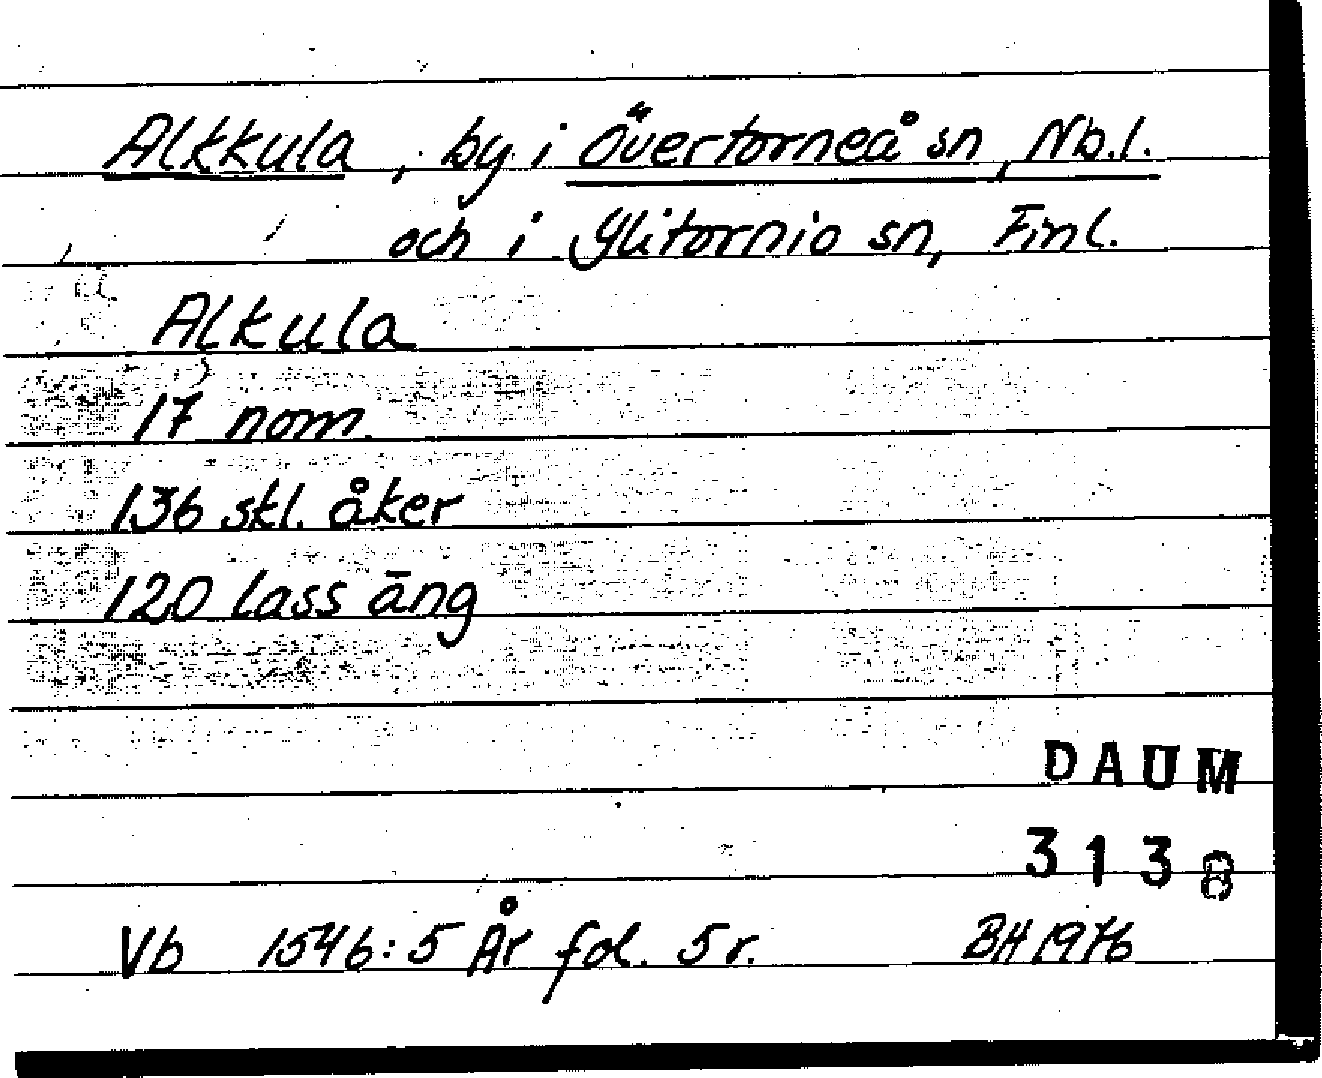 Alkkula, by i Övertorneå sn, Nb.l.
och i Ylitornio sn, Finl.
Alkula
17 nom
136 skl. åker
120 lass äng
DAUM
3138
Vb 1546:5 År fol. 5r. BH 1976